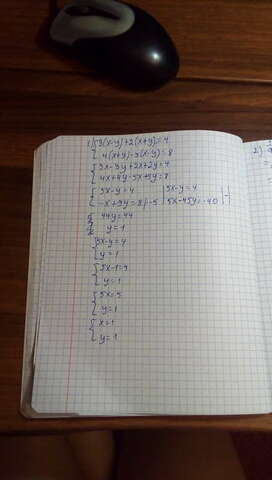 1) { 3(x-y)+2(x+y)=4
2)
4(x+y)-5(x-y)=8
{ 3x-3y+2x+2y=4
4x+4y-5x+5y=8
{ 5x-y=4 | 5x-y=4
-x+9y=8 |·-5 | 5x-45y=-40 | -
44y=44
y=1
{ 5x-y=4
y=1
{ 5x-1=4
y=1
{ 5x=5
y=1
{ x=1
y=1